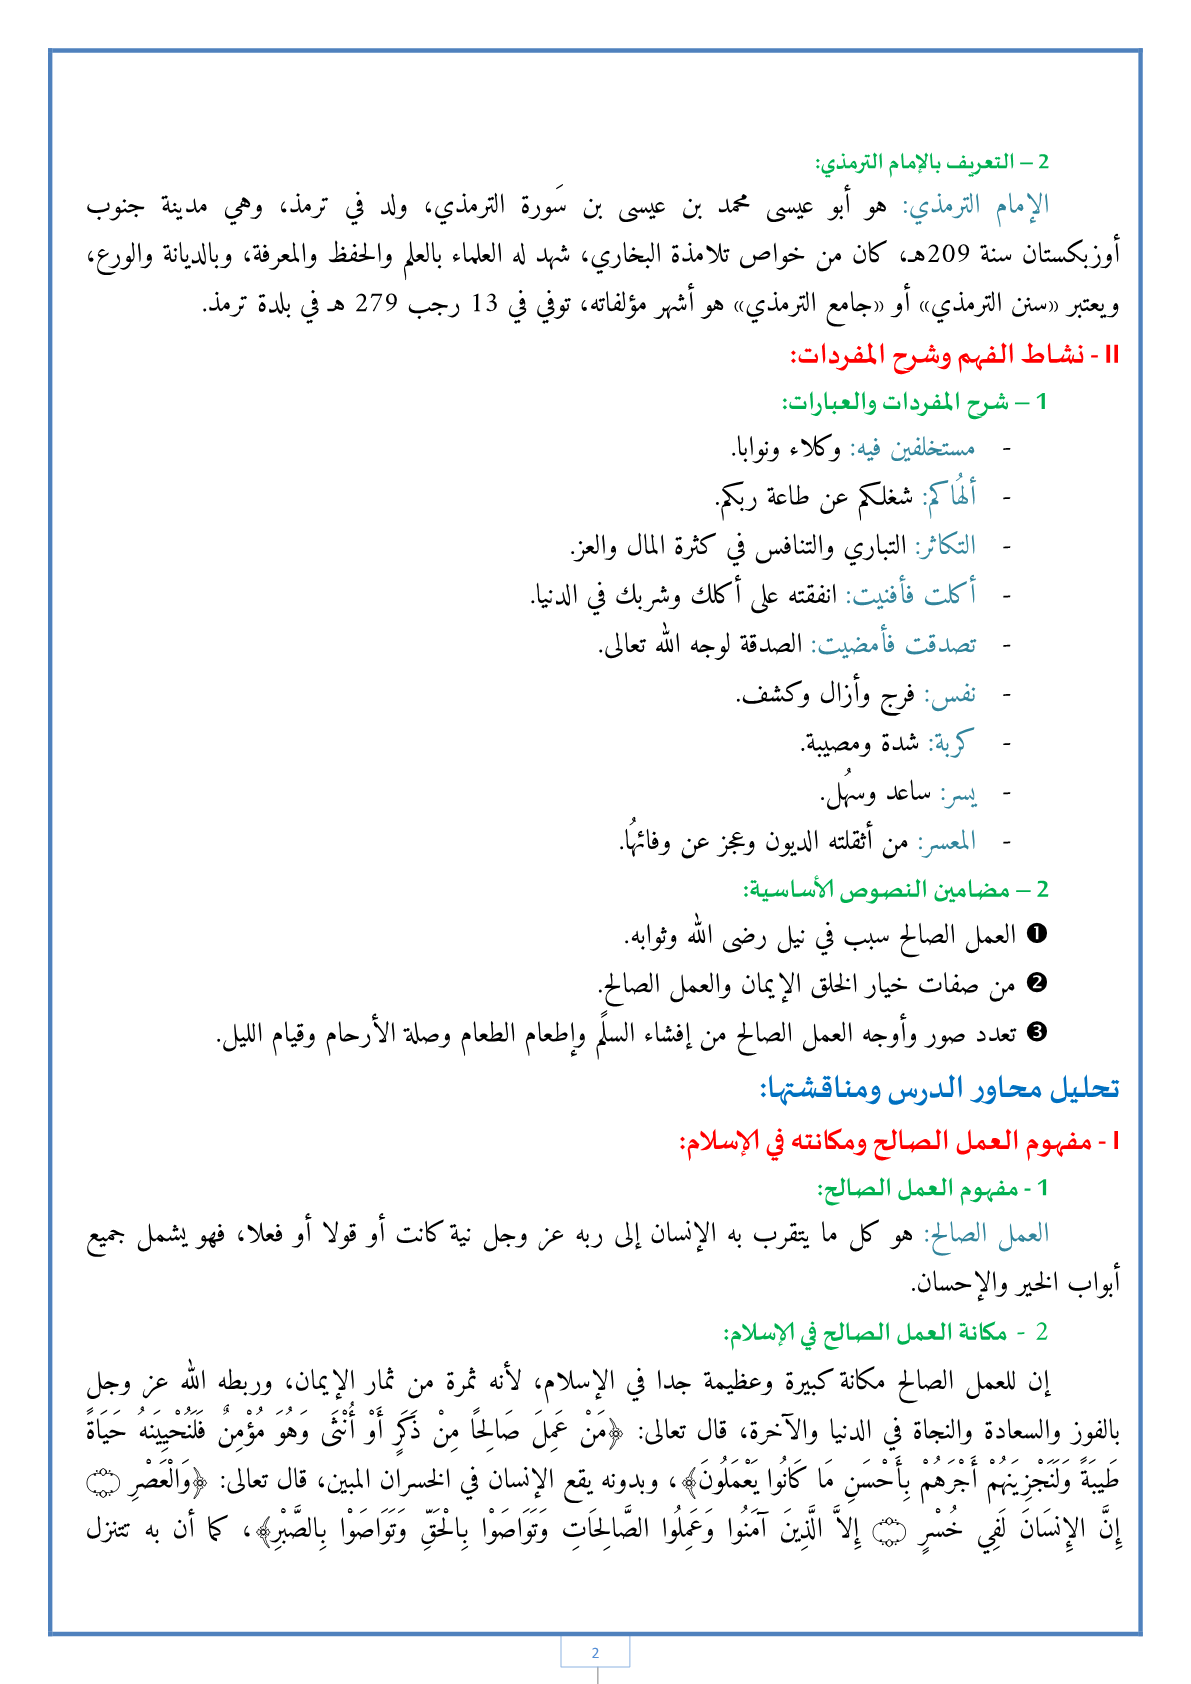 2 – التعريف بالإمام الترمذي:
الإمام الترمذي: هو أبو عيسى محمد بن عيسى بن سَورة الترمذي، ولد في ترمذ، وهي مدينة جنوب
أوزبكستان سنة 209هـ، كان من خواص تلامذة البخاري، شهد له العلماء بالعلم والحفظ والمعرفة، وبالديانة والورع،
ويعتبر «سنن الترمذي» أو «جامع الترمذي» هو أشهر مؤلفاته، توفي في 13 رجب 279 هـ في بلدة ترمذ.
II - نشاط الفهم وشرح المفردات:
1 – شرح المفردات والعبارات:
- مستخلفين فيه: وكلاء ونوابا.
- ألهُاكم: شغلكم عن طاعة ربكم.
- التكاثر: التباري والتنافس في كثرة المال والعز.
- أكلت فأفنيت: انفقته على أكلك وشربك في الدنيا.
- تصدقت فأمضيت: الصدقة لوجه الله تعالى.
- نفس: فرج وأزال وكشف.
- كربة: شدة ومصيبة.
- يسر: ساعد وسهُل.
- المعسر: من أثقلته الديون وعجز عن وفائهُا.
2 – مضامين النصوص الأساسية:
❶ العمل الصالح سبب في نيل رضى الله وثوابه.
❷ من صفات خيار الخلق الإيمان والعمل الصالح.
❸ تعدد صور وأوجه العمل الصالح من إفشاء السلٰم وإطعام الطعام وصلة الأرحام وقيام الليل.
تحليل محاور الدرس ومناقشتها:
I - مفهوم العمل الصالح ومكانته في الإسلام:
1 - مفهوم العمل الصالح:
العمل الصالح: هو كل ما يتقرب به الإنسان إلى ربه عز وجل نية كانت أو قولا أو فعلا، فهو يشمل جميع
أبواب الخير والإحسان.
2 - مكانة العمل الصالح في الإسلام:
إن للعمل الصالح مكانة كبيرة وعظيمة جدا في الإسلام، لأنه ثمرة من ثمار الإيمان، وربطه الله عز وجل
بالفوز والسعادة والنجاة في الدنيا والآخرة، قال تعالى: ﴿مَنْ عَمِلَ صَالِحًا مِنْ ذَكَرٍ أَوْ أُنْثَى وَهُوَ مُؤْمِنٌ فَلَنُحْيِيَنهُ حَيَاةً
طَيبَةً وَلَنَجْزِيَنهُمْ أَجْرَهُمْ بِأَحْسَنِ مَا كَانُوا يَعْمَلُونَ﴾، وبدونه يقع الإنسان في الخسران المبين، قال تعالى: ﴿وَالْعَصْرِ ۝
إِنَّ الإِنسَانَ لَفِي خُسْرٍ ۝ إِلاَّ الَّذِينَ آمَنُوا وَعَمِلُوا الصَّالِحَاتِ وَتَوَاصَوْا بِالْحَقِّ وَتَوَاصَوْا بِالصَّبْرِ﴾، كما أن به تتنزل
2